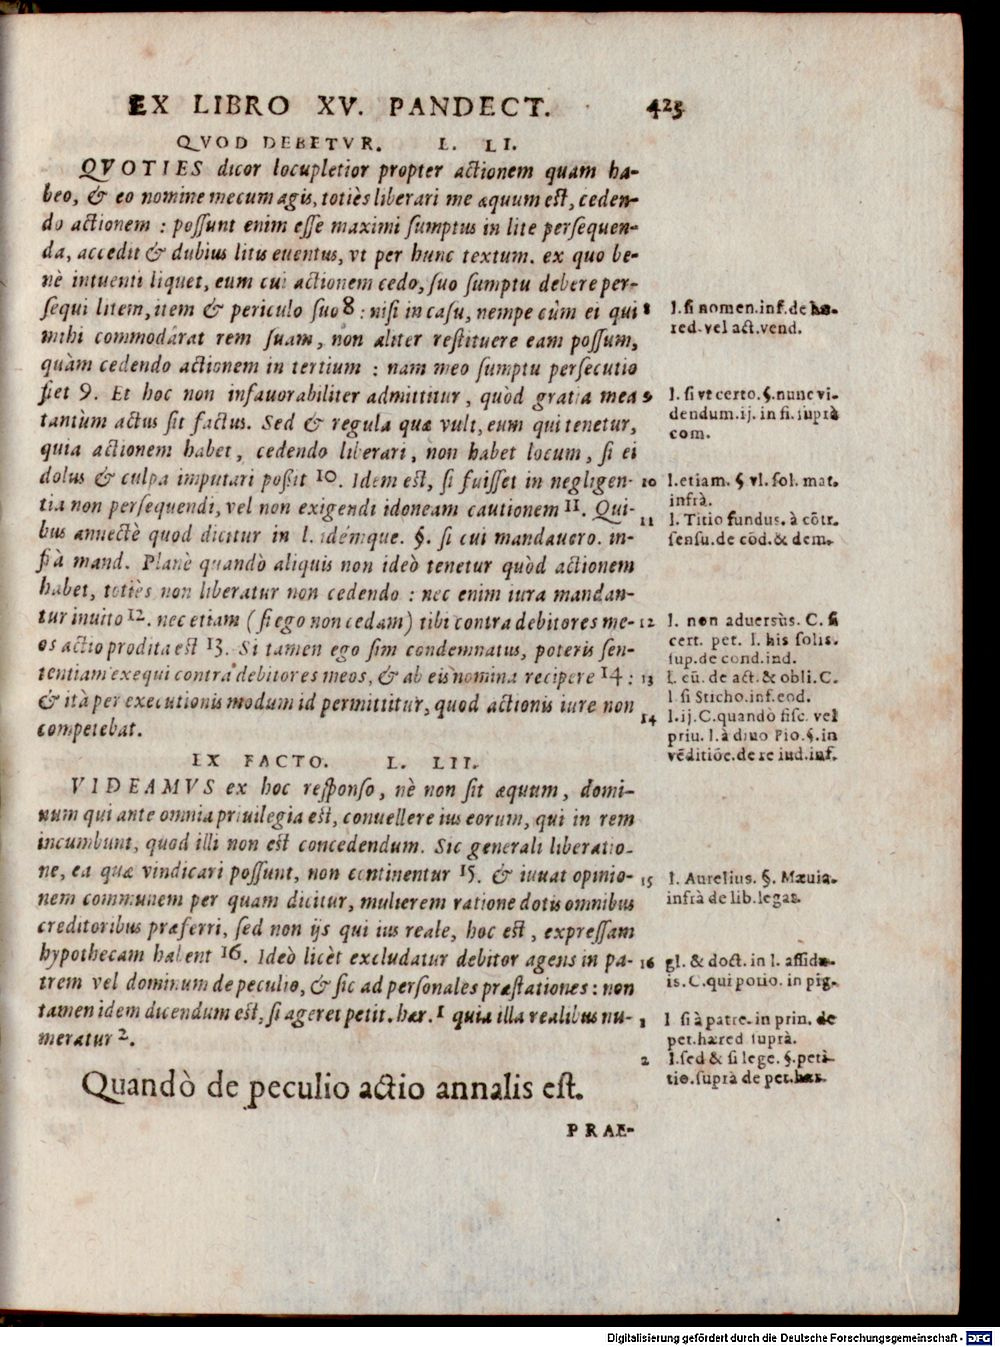 EX LIBRO XV. PANDECT. 425
QVOD DEBETVR. L. LI.
QVOTIES dicor locupletior propter actionem quam ha-
beo, & eo nomine mecum agis, totiès liberari me æquum est, ceden-
do actionem : possunt enim esse maximi sumptus in lite persequen-
da, accedit & dubius litis euentus, vt per hunc textum. ex quo be-
nè intuenti liquet, eum cui actionem cedo, suo sumptu debere per-
sequi litem, item & periculo suo 8 : nisi in casu, nempe cùm ei qui
mihi commodárat rem suam, non aliter restituere eam possum,
quàm cedendo actionem in tertium : nam meo sumptu persecutio
fiet 9. Et hoc non infauorabiliter admittitur, quòd gratia mea
tantùm actus sit factus. Sed & regula quæ vult, eum qui tenetur,
quia actionem habet, cedendo liberari, non habet locum, si ei
dolus & culpa imputari possit 10. Idem est, si fuisset in negligen-
tia non persequendi, vel non exigendi idoneam cautionem 11. Qui-
bus annectè quod dicitur in l. idémque. §. si cui mandauero. in-
frà mand. Planè quandò aliquis non ideò tenetur quòd actionem
habet, totiès non liberatur non cedendo : nec enim iura mandan-
tur inuito 12. nec etiam (si ego non cedam) tibi contra debitores me-
os actio prodita est 13. Si tamen ego sim condemnatus, poteris sen-
tentiam exequi contra debitores meos, & ab eis nomina recipere 14 :
& ità per executionis modum id permittitur, quod actionis iure non
competebat.
EX FACTO. L. LII.
VIDEAMVS ex hoc responso, nè non sit æquum, domi-
num qui ante omnia priuilegia est, conuellere ius eorum, qui in rem
incumbunt, quod illi non est concedendum. Sic generali liberatio-
ne, ea quæ vindicari possunt, non continentur 15. & iuuat opinio-
nem communem per quam dicitur, mulierem ratione dotis omnibus
creditoribus præferri, sed non ijs qui ius reale, hoc est, expressam
hypothecam habent 16. Ideò licèt excludatur debitor agens in pa-
trem vel dominum de peculio, & sic ad personales præstationes : non
tamen idem dicendum est, si ageret petit. hær. 1 quia illa realibus nu-
meratur 2.
Quandò de peculio actio annalis est.
PRAE-
8 l. si nomen. inf. de hæ-
red. vel act. vend.
9 l. si vt certo. §. nunc vi-
dendum. ij. in fi. suprà
com.
10 l. etiam. § vl. sol. mat.
infrà.
11 l. Titio fundus. à cōtr.
sensu. de cōd. & dem.
12 l. non aduersùs. C. si
cert. pet. l. his solis.
sup. de cond. ind.
13 l. cū. de act. & obli. C.
l. si Sticho. inf. eod.
14 l. ij. C. quandò fisc. vel
priu. l. à diuo Pio. §. in
vēditiōe. de re iud. inf.
15 l. Aurelius. §. Mæuia.
infrà de lib. legas.
16 gl. & doct. in l. assidu-
is. C. qui potio. in pig.
1 l si à patre. in prin. de
pet. hæred suprà.
2 l. sed & si lege. §. peti-
tio. suprà de pet. hær.
Digitalisierung gefördert durch die Deutsche Forschungsgemeinschaft - DFG